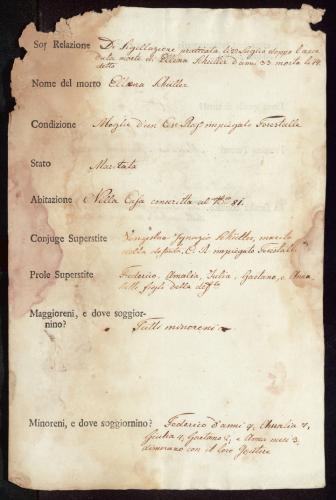 Sor Relazione Di Sigillazione praticata li 22 Luglio doppo l'acca
duta morte di Ellena Schüller d'anni 33 morta li 14
detto
Nome del morto Ellena Schüller
Condizione Moglie d'un Ces Reg impiegato Forestalle
Stato Maritata
Abitazione Nella Casa conscritta al N 81.
Conjuge Superstite Ignazio Schüller, marito
della defonta, C. R. impiegato Forestalle
Prole Superstite Federico, Amalia, Julia, Gaetano, e Anna
tutti figli della def.ta
Maggioreni, e dove soggior-
nino? Tutti minoreni
Minoreni, e dove soggiornino? Federico d'anni 9, Amalia 7,
Giulia 4, Gaetano 2, e Anna mesi 3,
dimorano con il loro Genitore